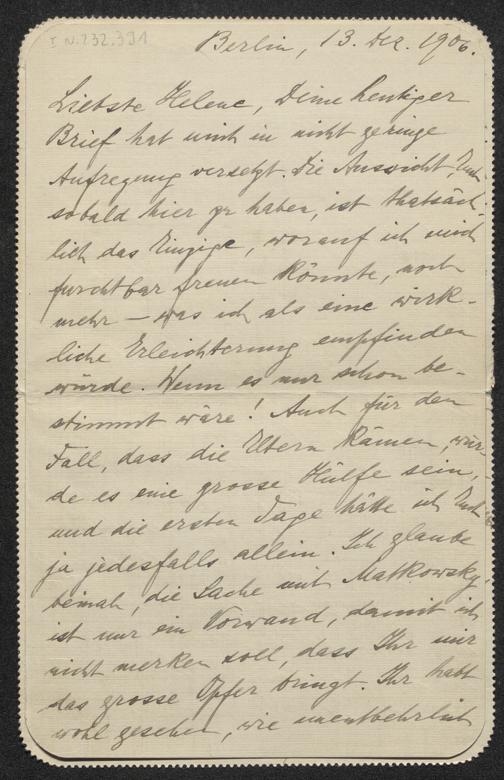 I.N. 232.391
Berlin, 13. Dez. 1906.
Liebste Helene, Deine heutiger
Brief hat mich in nicht geringe
Aufregung versetzt. Die Aussicht, Euch
sobald hier zu haben, ist thatsäch-
lich das Einzige, worauf ich mich
furchtbar freuen könnte, noch
mehr – was ich als eine wirk-
liche Erleichterung empfinden
würde. Wenn es nur schon be-
stimmt wäre! Auch für den
Fall, dass die Eltern kämen, wür-
de es eine grosse Hülfe sein,
und die ersten Tage hätte ich Euch
ja jedesfalls allein. Ich glaube
beinah, die Sache mit Matkowsky,
ist nur ein Vorwand, damit ich
nicht merken soll, dass Ihr mir
das grosse Opfer bringt. Ihr habt
wohl gesehen, wie unentbehrlich